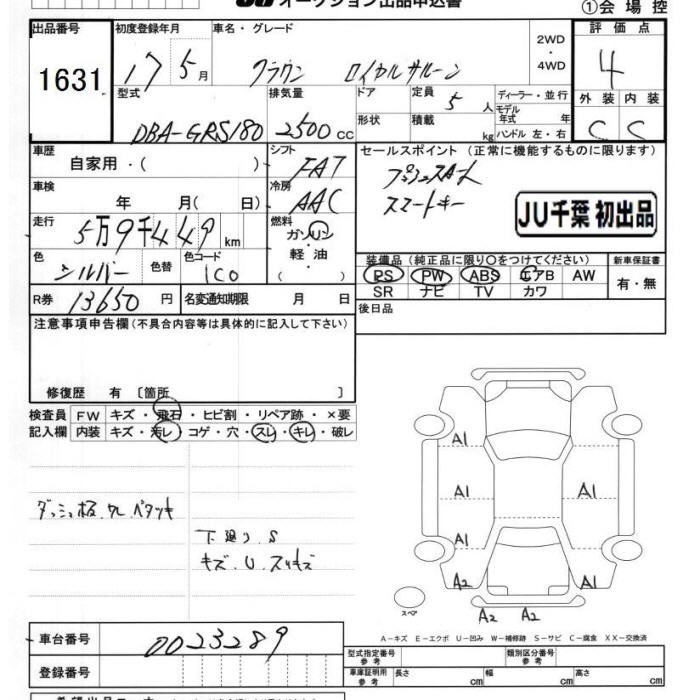 オークション出品申込書
①会場控
出品番号 初度登録年月 車名・グレード 評価点
1631 17 5月 クラウン ロイヤルサルーン 2WD・4WD 4
型式 排気量 ドア 定員 5人 ディーラー・並行 外装 内装
DBA-GRS180 2500cc 形状 積載 kg モデル年式 年 ハンドル 左・右 C C
車歴 自家用・( ) シフト FAT セールスポイント(正常に機能するものに限ります)
車検 年 月( 日) 冷房 AAC プッシュスタート
スマートキー
JU千葉 初出品
走行 5万9千449km 燃料 ガソリン・軽油・( )
色 シルバー 色替 色コード 1C0 装備品(純正品に限り○をつけてください) 新車保証書
PS PW ABS エアB AW 有・無
SR ナビ TV カワ
R券 13650円 名変通知期限 月 日 後日品
注意事項申告欄(不具合内容等は具体的に記入して下さい)
修復歴 有〔箇所 〕
検査員 FW キズ・飛石・ヒビ割・リペア跡・×要
記入欄 内装 キズ・汚レ・コゲ・穴・スレ・キレ・破レ
A1
A1 A1
A1
A2 A1
A2 A2
スペア
ダッシュ板
下廻り.S
キズ.U.スリキズ
A-キズ E-エクボ U-凹み W-補修跡 S-サビ C-腐食 XX-交換済
車台番号 0023289
型式指定番号 参考 類別区分番号 参考
登録番号 車庫証明用 参考 長さ cm 幅 cm 高さ cm